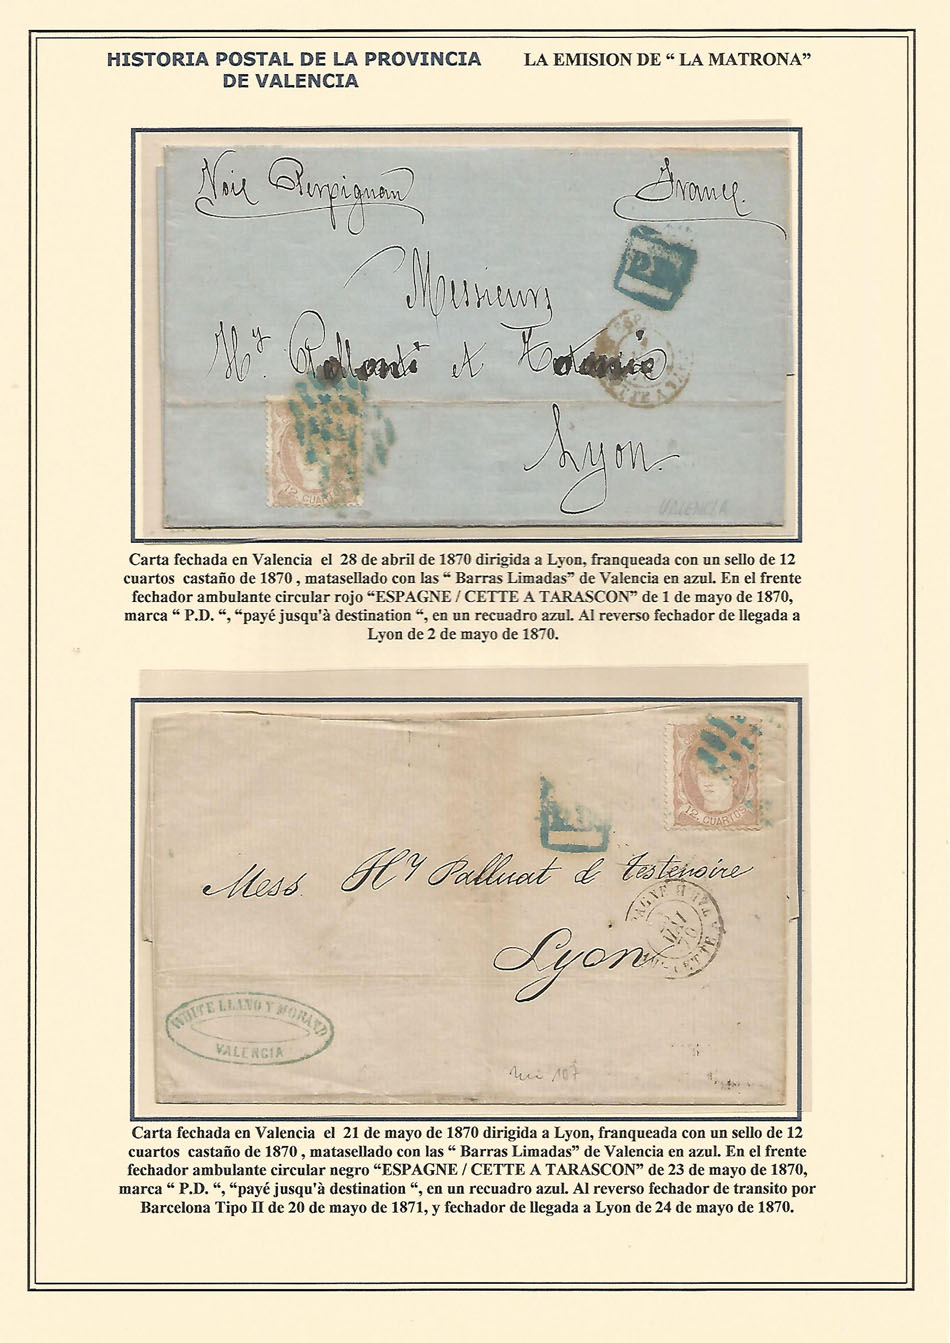 HISTORIA POSTAL DE LA PROVINCIA
DE VALENCIA
LA EMISION DE “ LA MATRONA”
Voie Perpignan
France.
P.D
Messieurs
ESP
Hy. et
TTE A TA
12 CUARTOS
Lyon.
VALENCIA
Carta fechada en Valencia el 28 de abril de 1870 dirigida a Lyon, franqueada con un sello de 12
cuartos castaño de 1870 , matasellado con las “ Barras Limadas” de Valencia en azul. En el frente
fechador ambulante circular rojo “ESPAGNE / CETTE A TARASCON” de 1 de mayo de 1870,
marca “ P.D. “, “payé jusqu'à destination “, en un recuadro azul. Al reverso fechador de llegada a
Lyon de 2 de mayo de 1870.
12. CUARTOS
Mess. Hy Palluat & Testenoire
MAI
70
CETTE
Lyon
WHITE LLANO Y MORAND
VALENCIA
107
Carta fechada en Valencia el 21 de mayo de 1870 dirigida a Lyon, franqueada con un sello de 12
cuartos castaño de 1870 , matasellado con las “ Barras Limadas” de Valencia en azul. En el frente
fechador ambulante circular negro “ESPAGNE / CETTE A TARASCON” de 23 de mayo de 1870,
marca “ P.D. “, “payé jusqu'à destination “, en un recuadro azul. Al reverso fechador de transito por
Barcelona Tipo II de 20 de mayo de 1871, y fechador de llegada a Lyon de 24 de mayo de 1870.